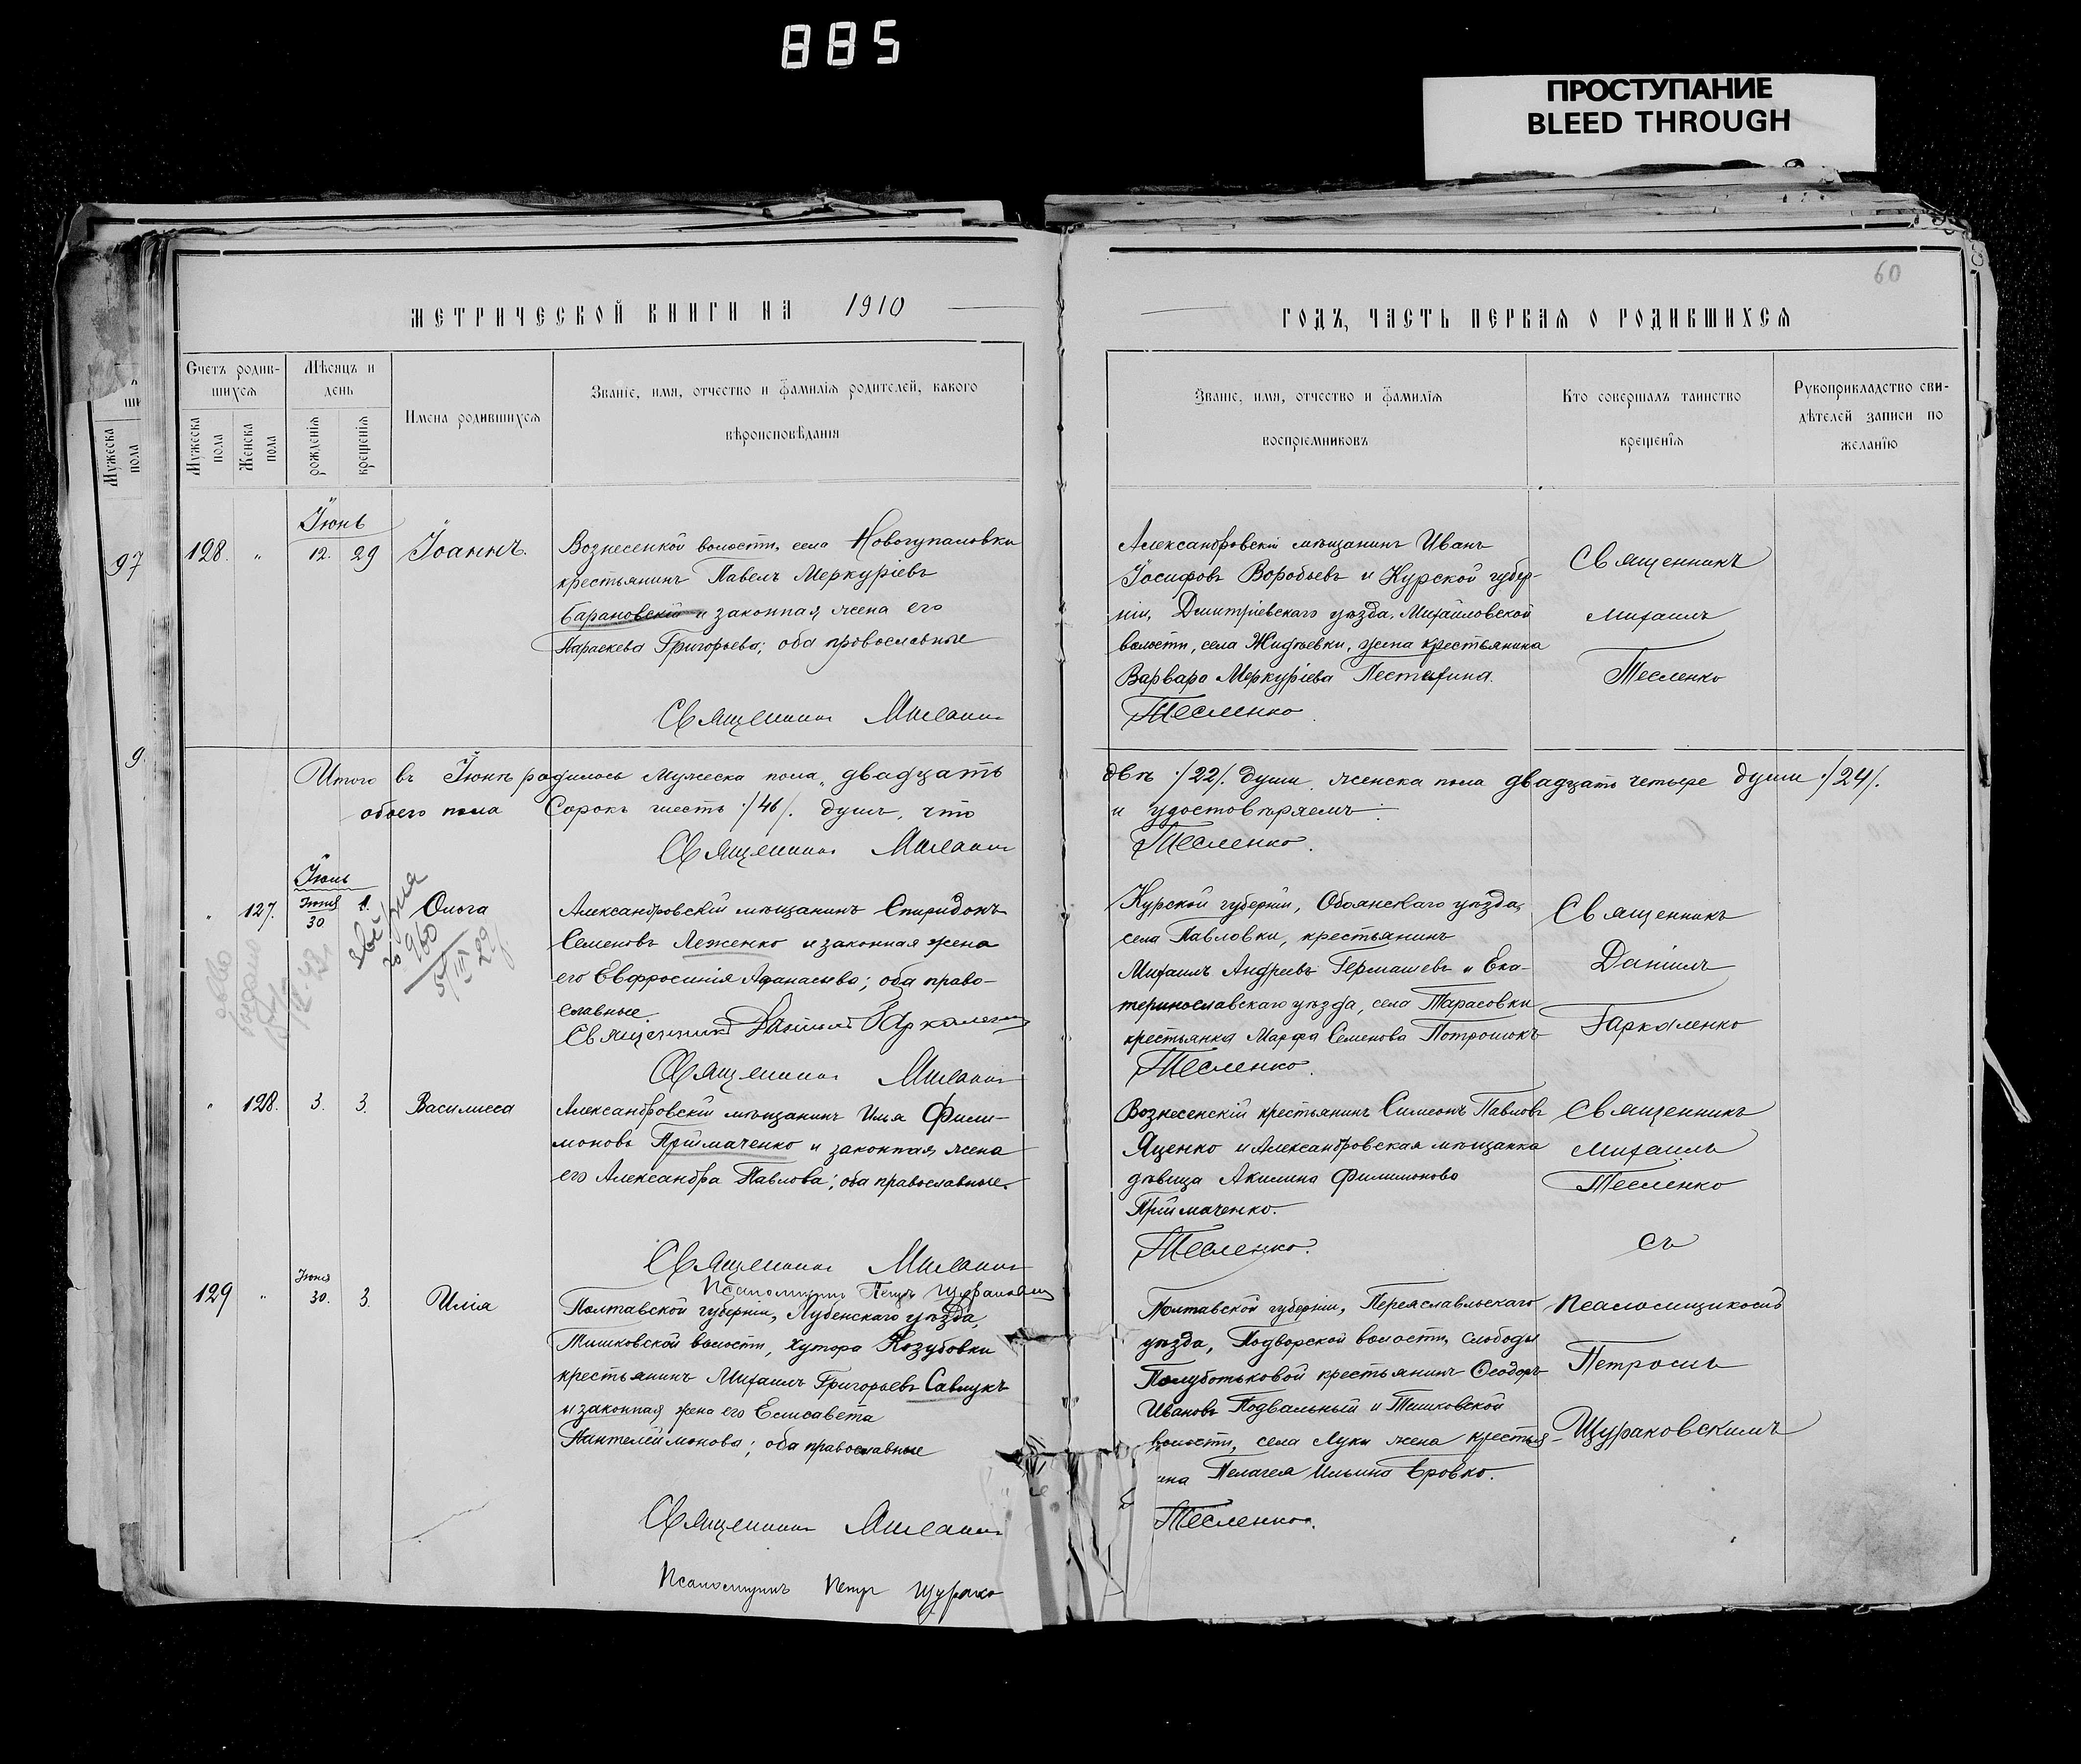 885
ПРОСТУПАНИЕ
BLEED THROUGH
60
МЕТРИЧЕСКОЙ КНИГИ НА 1910
ГОДЪ, ЧАСТЬ ПЕРВАЯ О РОДИВШИХСЯ
Счетъ родив-
шихся
Мужеска пола
Женска пола
Мѣсяцъ и
день
рожденія
крещенія
Имена родившихся
Званіе, имя, отчество и фамилія родителей, какого
вѣроисповѣданія
Званіе, имя, отчество и фамилія
воспріемниковъ
Кто совершалъ таинство
крещенія
Рукоприкладство сви-
дѣтелей записи по
желанію
Мужеска пола
97
9
Іюнь
128. " 12. 29 Іоаннъ.
Вознесенкой волости, села Новогупаловки
крестьянинъ Павелъ Меркуріевъ
Барановскій и законная жена его
Параскева Григорьева; оба православные
Священникъ
Александровскій мѣщанинъ Иванъ
Іосифовъ Воробьевъ и Курской губер-
ніи, Дмитріевскаго уѣзда, Михайловской
волости, села Жидѣевки, жена крестьянина
Варвара Меркуріева
Тесленко
Священникъ
Михаилъ
Тесленко
Итого въ Іюнѣ родилось мужеска пола двадцать
двѣ /22/. души, женска пола двадцать четыре души /24/.
обоего пола Сорокъ шесть /46/. душъ, что
и удостовѣряемъ:
Священникъ
Тесленко.
Іюль
" 127. Іюня 30. 1. Ольга
960
Александровскій мѣщанинъ Спиридонъ
Семеновъ Леженко и законная жена
его Евфросинія Афанасьева; оба право-
славные.
Священникъ Даніилъ Гаркаленко
Священникъ
Курской губерніи, Обоянскаго уѣзда,
села Павловки, крестьянинъ
Михаилъ Андреевъ Гермашевъ и Ека-
теринославскаго уѣзда, села Тарасовки
крестьянка Марфа Семенова
Тесленко.
Священникъ
Даніилъ
Гаркаленко
" 128. 3. 3. Василисса
Александровскій мѣщанинъ Илья Фили-
моновъ Пріймаченко и законная жена
его Александра Павлова; оба православные.
Священникъ
Псаломщикъ Петръ
Вознесенскій крестьянинъ Симеонъ Павловъ
Яценко и Александровская мѣщанка
дѣвица Акилина Филимонова
Пріймаченко.
Тесленко.
Священникъ
Михаилъ
Тесленко
съ
129 " Іюня 30. 3. Илія
Полтавской губерніи, Лубенскаго уѣзда,
Тишковской волости, хутора Козубовки
крестьянинъ Михаилъ Григорьевъ Савлукъ
и законная жена его Елисавета
Пантелеймонова; оба православные
Священникъ
Псаломщикъ Петръ
Полтавской губерніи, Переяславльскаго
уѣзда, Подворской волости, слободы
Полуботьковой крестьянинъ Ѳеодоръ
Ивановъ Подвальный и Тишковской
волости, села Луки жена крестья-
ина Пелагея Ильина Бровко.
Тесленко.
псаломщикомъ
Петромъ
Щураковскимъ